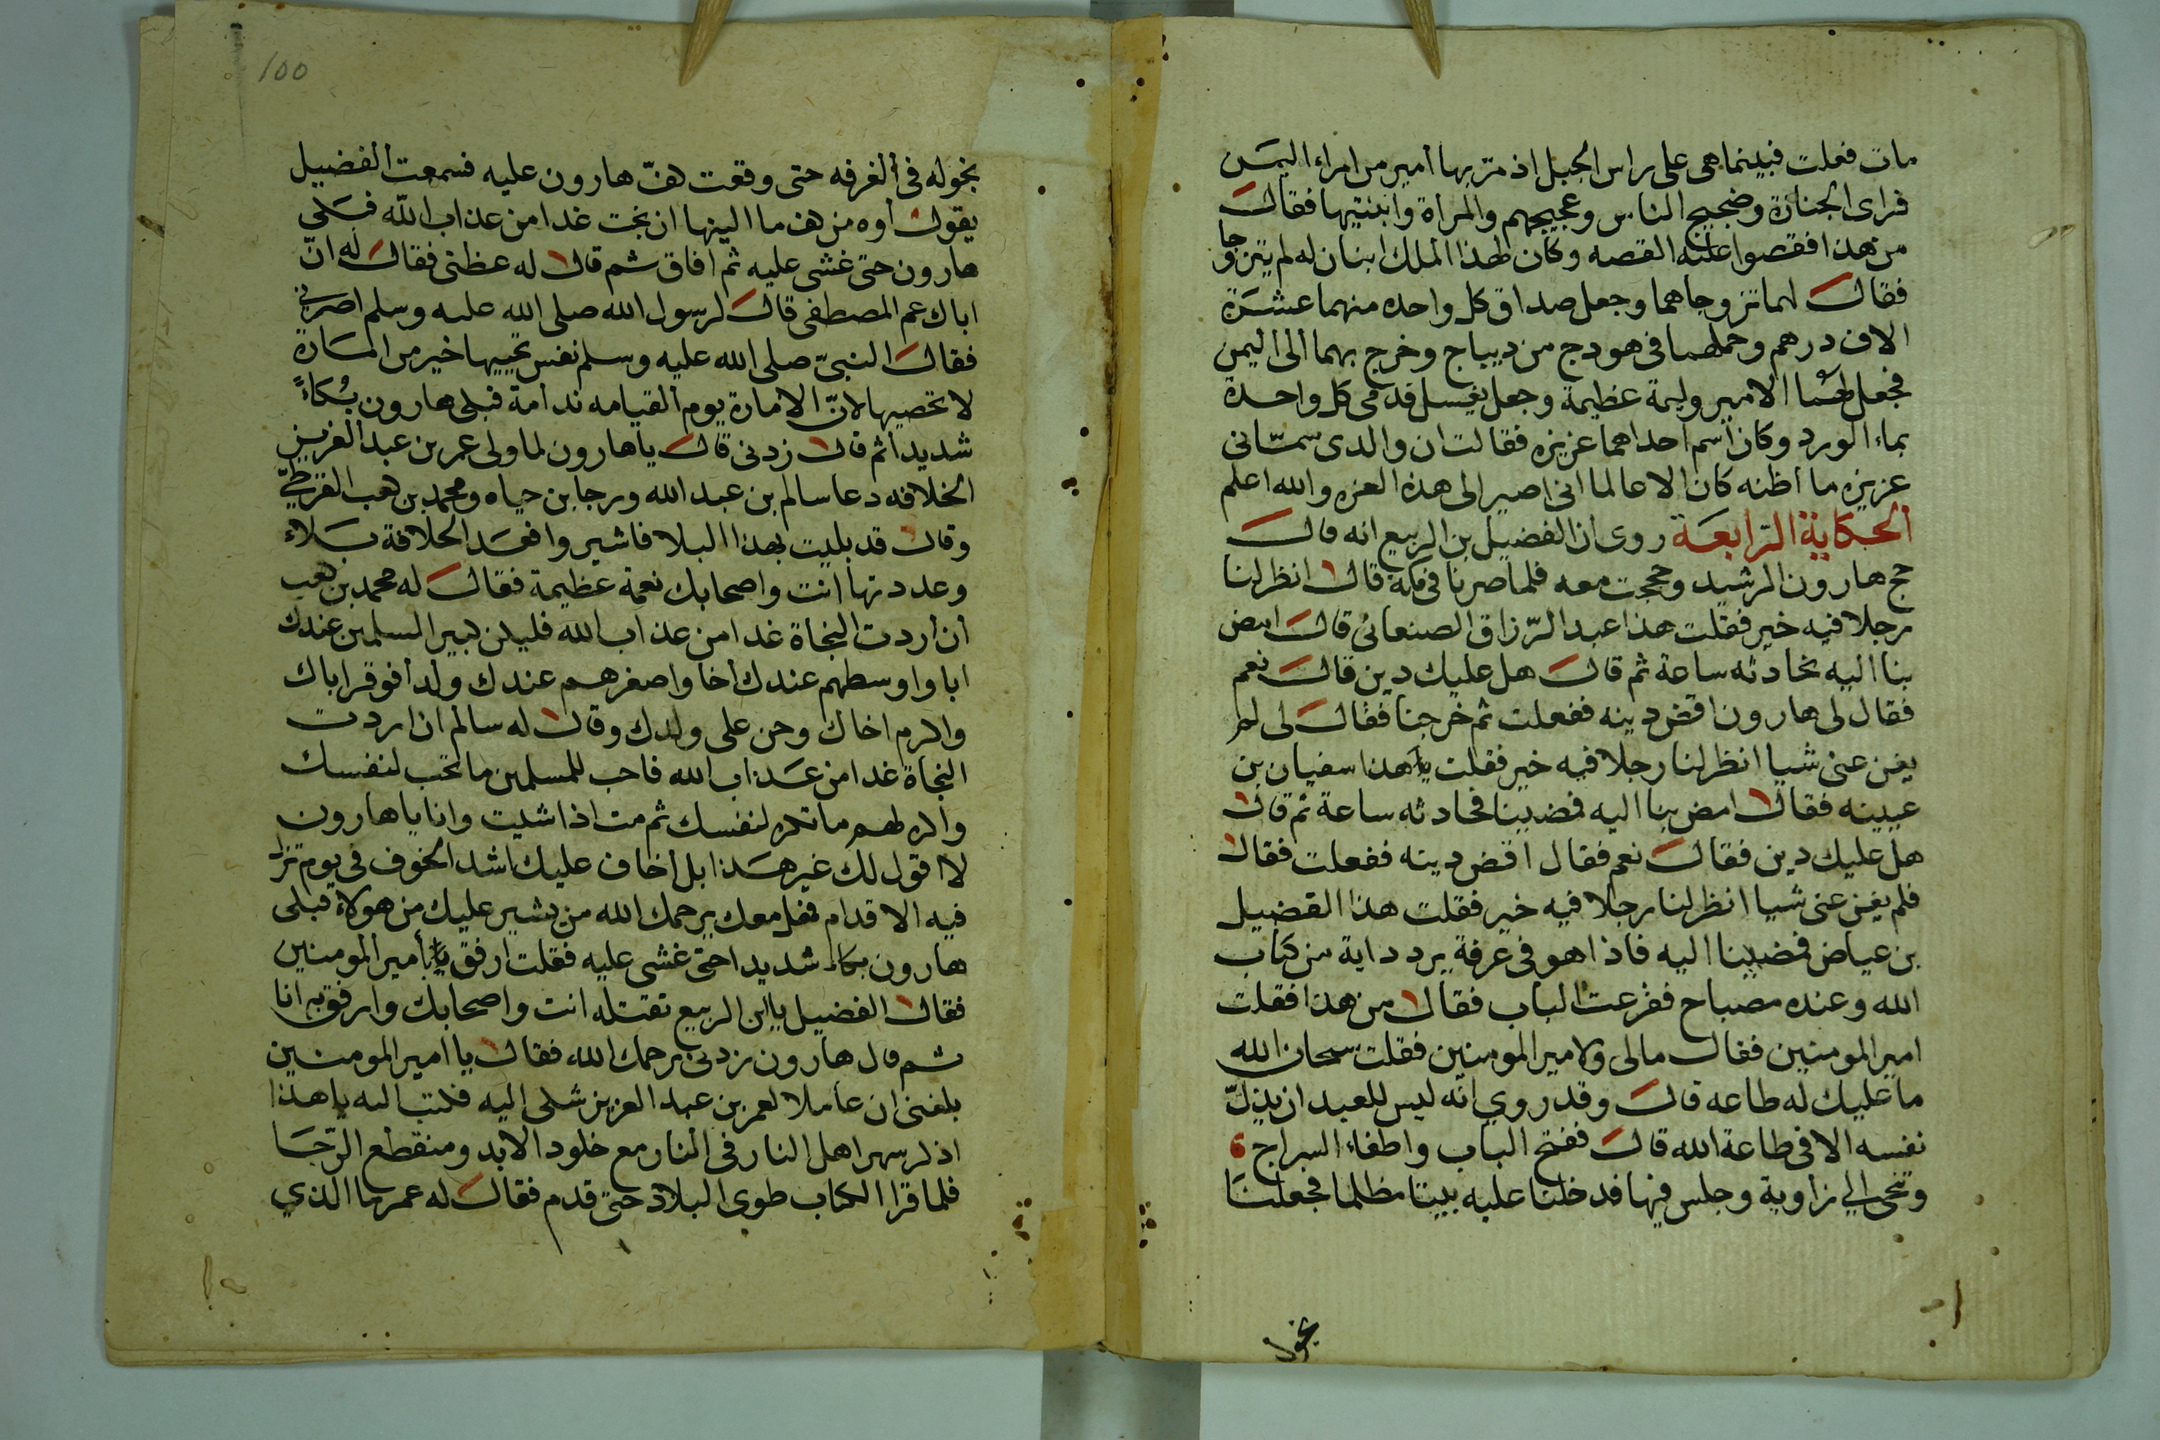 مات فعلت فبينما هي على راس الجبل اذ مر بها أمير من امراء اليمن
فراى الجنازة وضجيج الناس وعجيجهم والمراة وابنتيها فقال
من هذا فقصوا عليه القصه وكان لهذا الملك ابنان له لم يتزوجا
فقال لهما تزوجاهما وجعل صداق كل واحده منهما عشرة
الاف درهم وحملهما في هودج من ديباج وخرج بهما الى اليمن
فجعل لهما الامير وليمة عظيمة وجعل يغسل قدمى كل واحدة
بماء الورد وكان اسم احداهما عزيزه فقالت ان والدى سمّانى
عزيزه ما أظنه كان الا عالما انى اصير الى هذه العزه والله اعلم
الحكاية الرابعة روى ان الفضيل بن الربيع انه قال
حج هارون الرشيد وحججت معه فلما صرنا في مكة قال انظر لنا
رجلا فيه خير فقلت هذا عبد الرّزاق الصنعانى قال امض
بنا اليه نحادثه ساعة ثم قال هل عليك دين قال نعم
فقال لى هارون اقض دينه ففعلت ثم خرجنا فقال لى لم
يغن عنى شيا انظر لنا رجلا فيه خير فقلت هذا سفيان بن
عيينه فقال امض بنا اليه فمضينا فحادثه ساعة ثم قال
هل عليك دين فقال نعم فقال اقض دينه ففعلت فقال
فلم يغن عنى شيا انظر لنا رجلا فيه خير فقلت هذا الفضيل
بن عياض فمضينا اليه فاذا هو في غرفة يردد اية من كتاب
الله وعنده مصباح فقرعت الباب فقال من هذا فقلت
امير المومنين فقال مالى ولامير المومنين فقلت سبحان الله
ما عليك له طاعه قال وقد روي انه ليس للعبد ان يذلّ
نفسه الا في طاعة الله قال ففتح الباب واطفاء السراج
وتنحى الى زاوية وجلس فيها فدخلنا عليه بيتا مظلما فجعلنا
نجول
100
نجوله في الغرفه حتى وقعت كفّ هارون عليه فسمعت الفضيل
يقول أوه من كف ما الينها ان نجت غدا من عذاب الله فبكى
هارون حتى غشى عليه ثم افاق ثم قال له عظنى فقال له انّ
اباك عم المصطفى قال لرسول الله صلى الله عليه وسلم امرنى
فقال النبىّ صلى الله عليه وسلم نفس تحييها خير من امارة
لا تحصيها لانّ الامارة يوم القيامه ندامة فبكى هارون بُكاءً
شديدا ثم قال زدنى قال يا هارون لما ولى عمر بن عبد العزيز
الخلافه دعا سالم بن عبد الله ورجا بن حياه ومحمد بن كعب القرظيّ
وقال قد بليت بهذا البلا فاشيروا فعد الخلافة بلاء
وعددتها انت واصحابك نعمة عظيمة فقال له محمد بن كعب
أن أردت النجاة غدا من عذاب الله فليكن كبير المسلمين عندك
ابا واوسطهم عندك أخا واصغرهم عندك ولدا فوقر اباك
واكرم اخاك وحن على ولدك وقال له سالم ان اردت
النجاة غدا من عذاب الله فاحب للمسلمين ما تحب لنفسك
واكره لهم ما تكره لنفسك ثم مت اذا شيت وانا يا هارون
لا اقول لك غير هذا بل أخاف عليك اشد الخوف في يوم تزل
فيه الاقدام فهل معك يرحمك الله من يشير عليك من هولاء فبكى
هارون بكاء شديدا حتى غشى عليه فقلت ارفق يا أمير المومنين
فقال الفضيل يا ابن الربيع تقتله انت واصحابك وارفق به انا
ثم قال هارون زدنى يرحمك الله فقال يا امير المومنين
بلغنى ان عاملا لعمر بن عبد العزيز شكى اليه فكتب اليه يا هذا
اذكر سهر اهل النار في النار مع خلود الابد ومنقطع الرّجا
فلما قرا الكتاب طوى البلاد حتى قدم فقال له عمر ما الذي